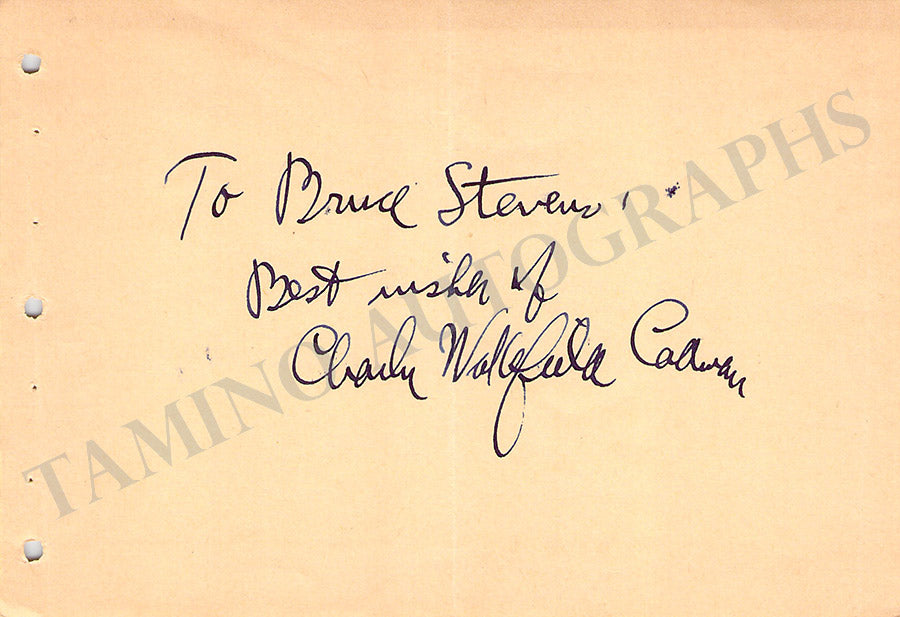 To Bruce Stevens
Best wishes of
Charles Wakefield Cadman
TAMINO AUTOGRAPHS